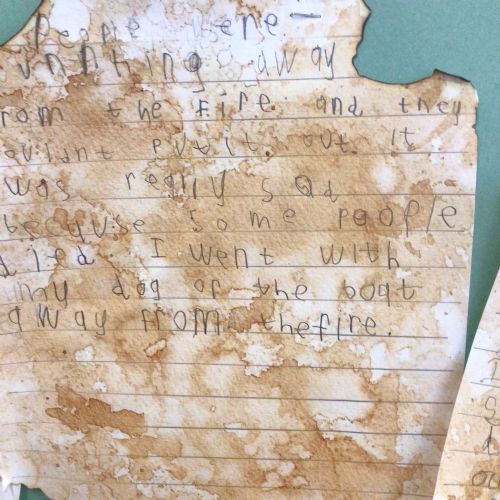 People were
unnting away
rom the fire and they
ouldnt putit out. it
was really sad
because some poople
died I went with
my dog of the boat
away from thefire.